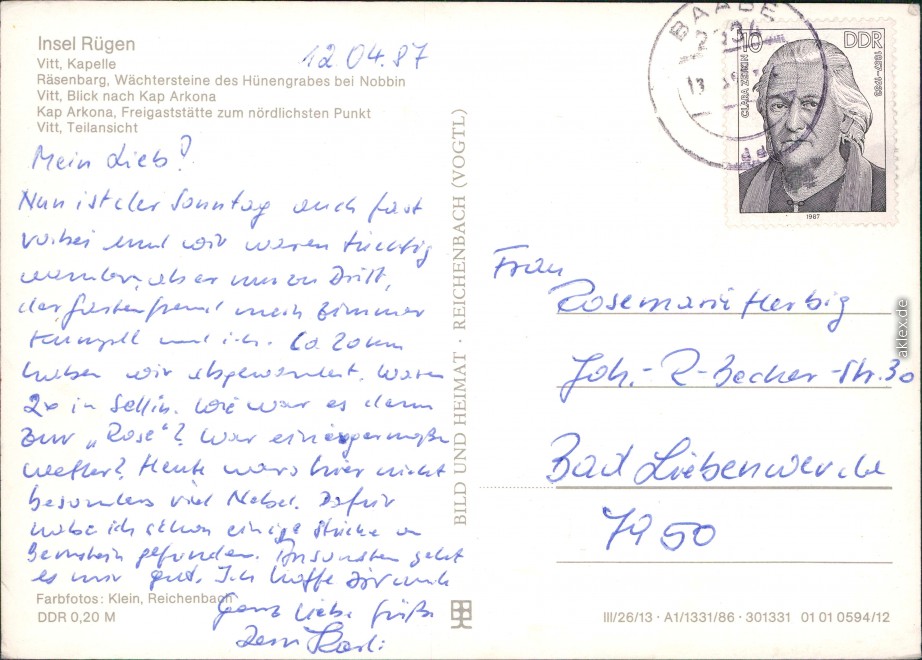 Insel Rügen
12.04.87
Vitt, Kapelle
Räsenbarg, Wächtersteine des Hünengrabes bei Nobbin
Vitt, Blick nach Kap Arkona
Kap Arkona, Freigaststätte zum nördlichsten Punkt
Vitt, Teilansicht
Mein Lieb!
Nun ist der Sonntag auch fast
vorbei und wir waren tüchtig
wandern, aber nur zu Dritt,
der mein Zimmer
kumpel und ich. Ca 20 km
haben wir abgewandert. Waren
2x in Sellin. Wie war es denn
zur „Rose“? War einigermaßen
Wetter? Heute wars hier nicht
besonders viel Nebel. Dafür
habe ich schon einige Stücke
Bernstein gefunden. Ansonsten geht
es mir gut. Ich hoffe Dir auch
Ganz liebe Grüße
Dein
Farbfotos: Klein, Reichenbach
DDR 0,20 M
BILD UND HEIMAT · REICHENBACH (VOGTL)
BAABE
13
10
DDR
CLARA ZETKIN
1857–1933
1987
Frau
Rosemarie Herbig
Joh.-R-Becher-Str. 30
Bad Liebenwerda
7950
III/26/13 · A1/1331/86 · 301331 01 01 0594/12
aklex.de